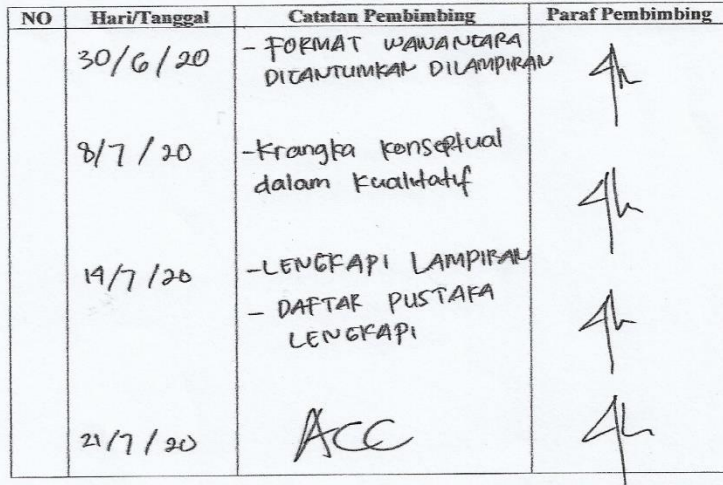 NO Hari/Tanggal Catatan Pembimbing Paraf Pembimbing
30/6/20 - FORMAT WAWANCARA
DICANTUMKAN DILAMPIRAN
8/7/20 - Krangka konseptual
dalam kualitatif
14/7/20 - LENGKAPI LAMPIRAN
- DAFTAR PUSTAKA
LENGKAPI
21/7/20 ACC